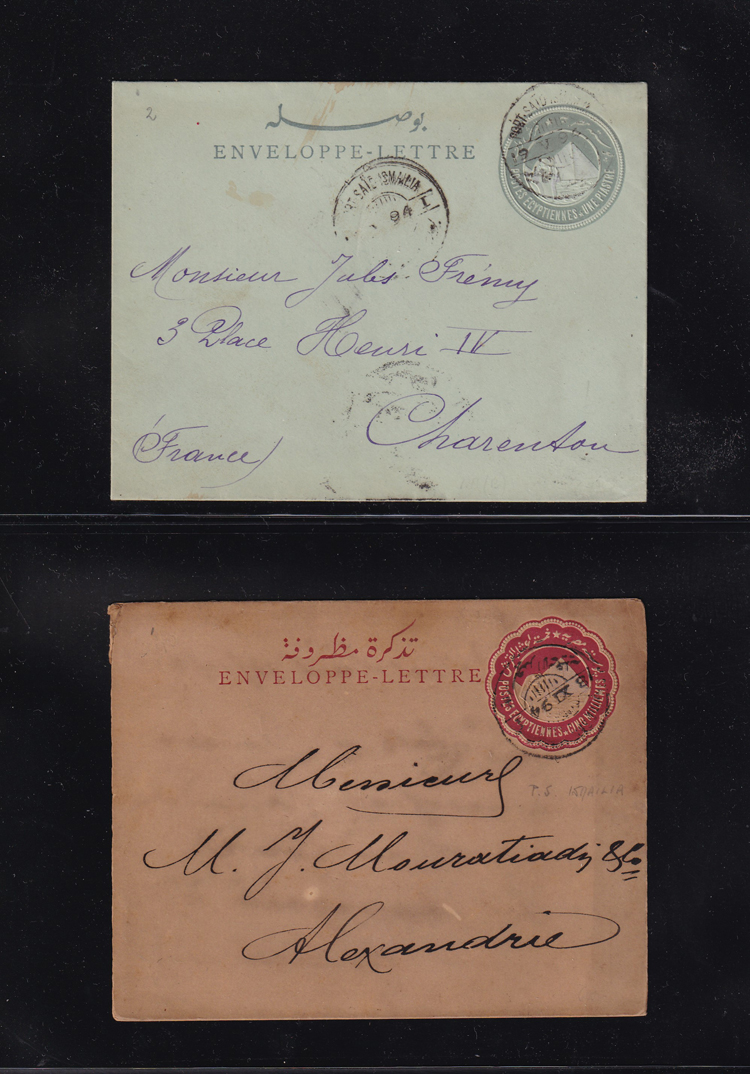 2
بوصله
ENVELOPPE-LETTRE
PORT SAID ISMAILIA
POSTES EGYPTIENNES. UNE PIASTRE
PORT SAID ISMAILIA
94
I
Monsieur Jules Frémy
3 Place Henri IV
Charenton
(France)
تذكرة مظروفة
ENVELOPPE-LETTRE
POSTES EGYPTIENNES. CINQ MILLIEMES
3 XI 94
Messieurs
P. S. ISMAILIA
M. J. Mouratiadis & Co
Alexandrie